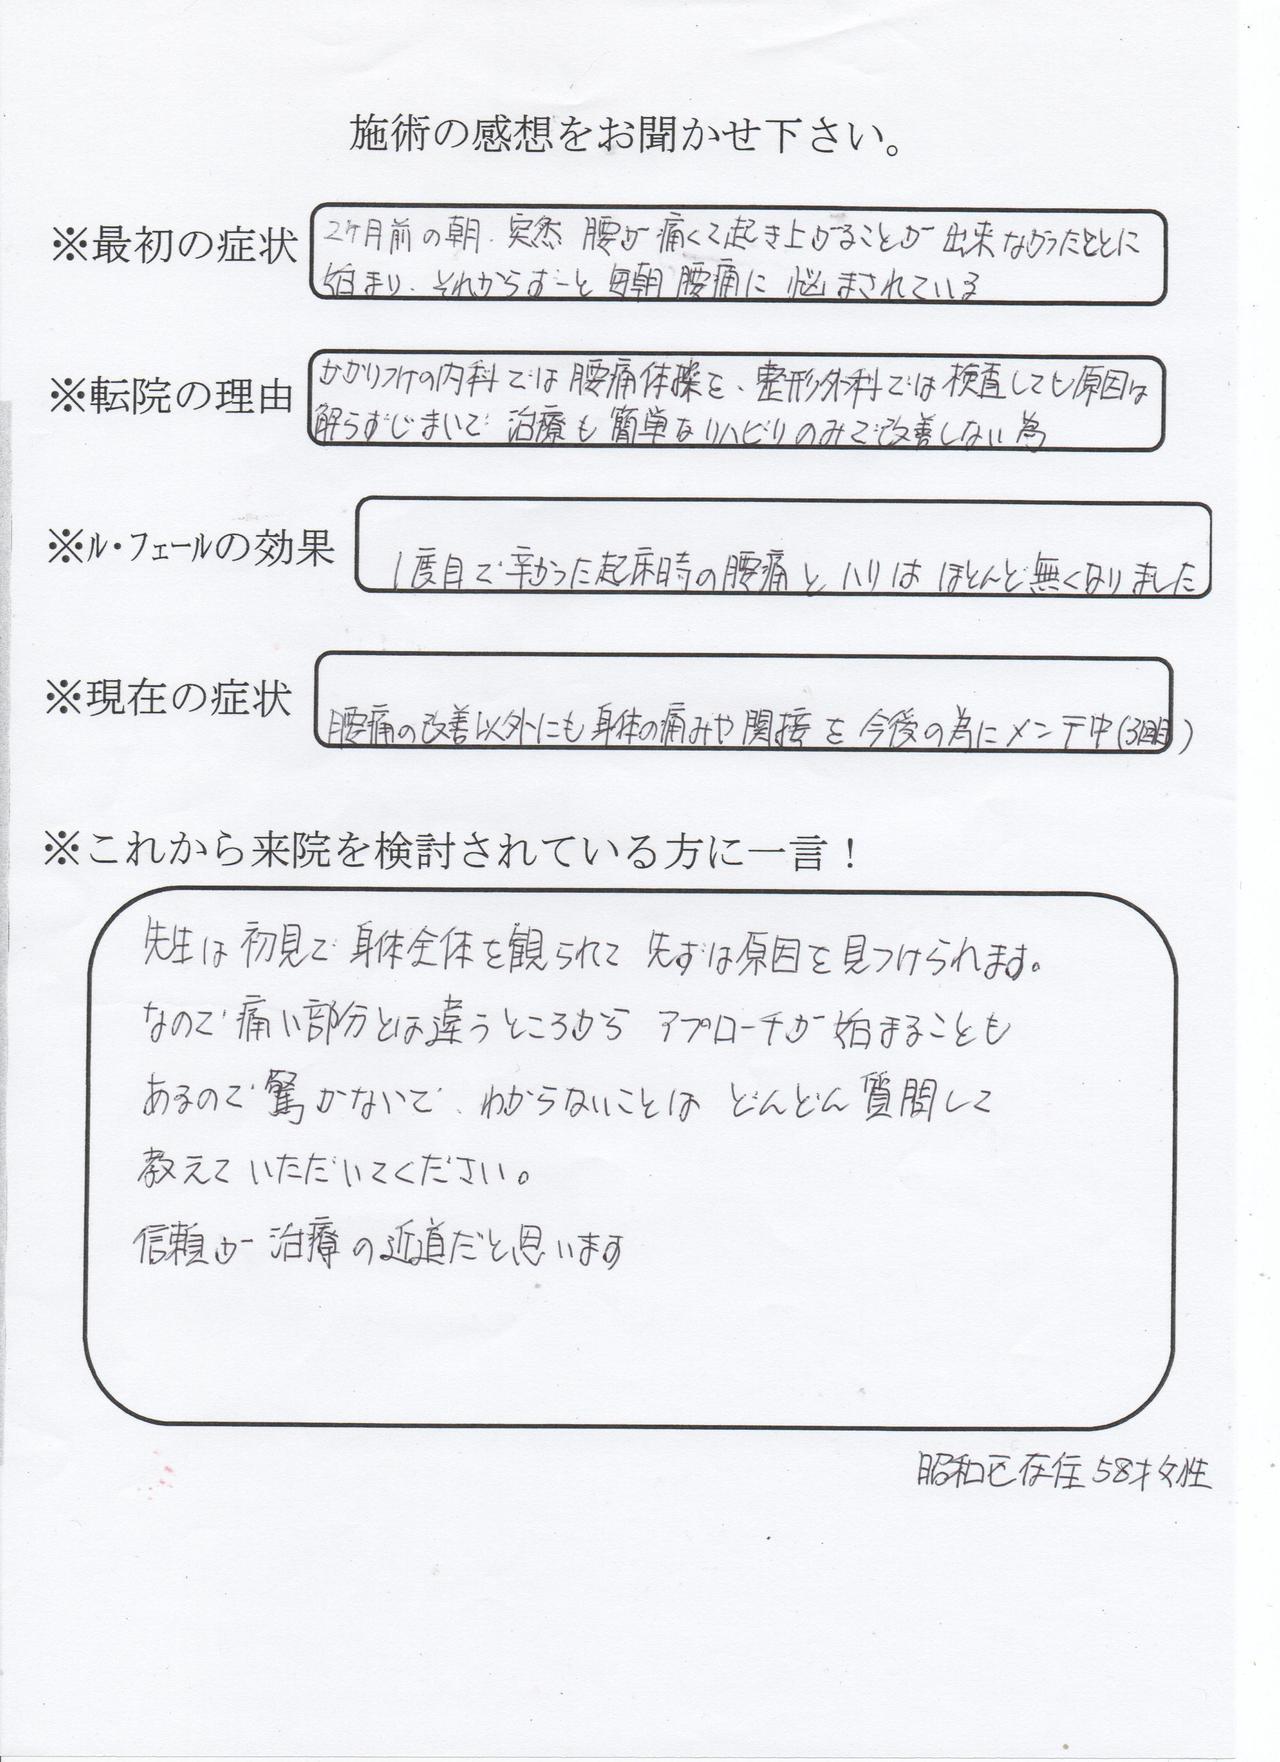 施術の感想をお聞かせ下さい。
※最初の症状
2ケ月前の朝、突然 腰が痛くて起き上がることが出来なかったことに
始まり、それからずーと毎朝腰痛に悩まされている
※転院の理由
かかりつけの内科では腰痛体操を、整形外科では検査しても原因は
解らずじまいで 治療も簡単なリハビリのみで改善しない為
※ル・フェールの効果
1度目で辛かった起床時の腰痛とハリはほとんど無くなりました
※現在の症状
腰痛の改善以外にも身体の痛みや関接を今後の為にメンテ中(3回目)
※これから来院を検討されている方に一言！
先生は初見で身体全体を観られて先ずは原因を見つけられます。
なので痛い部分とは違うところからアプローチが始まることも
あるので驚かないで、わからないことはどんどん質問して
教えていただいてください。
信頼が治療の近道だと思います
昭和区在住58才女性